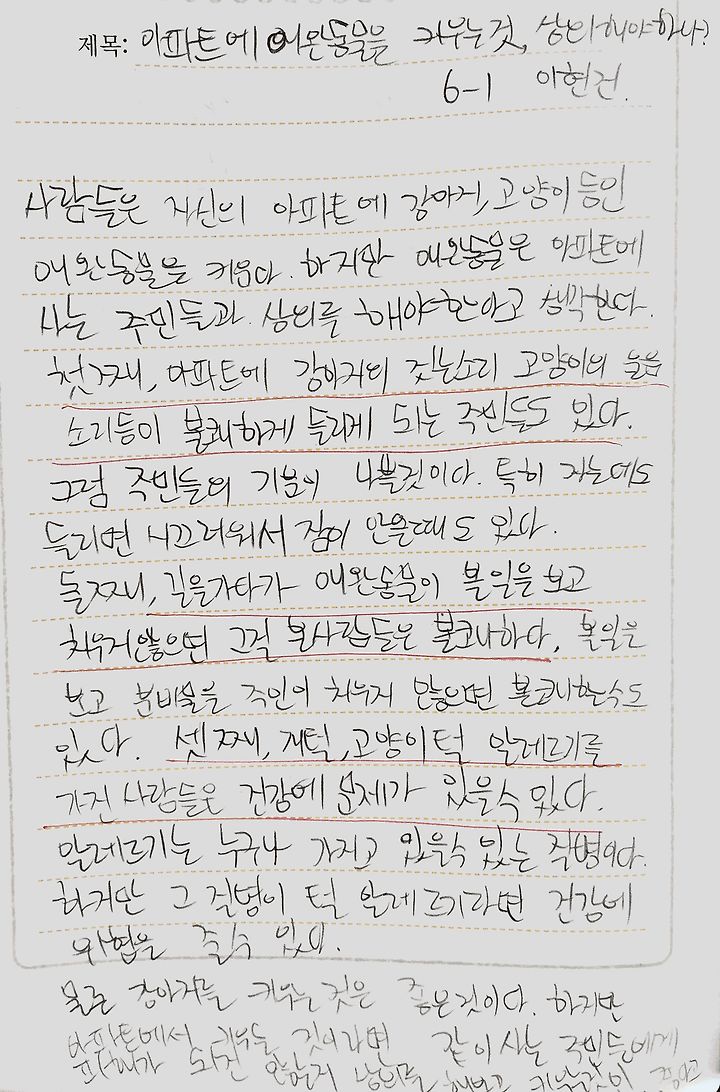 제목: 아파트에 애완동물을 키우는것, 상의해야하나?
6-1 이현건.
사람들은 자신의 아파트에 강아지, 고양이 등인
애완동물을 키운다. 하지만 애완동물은 아파트에
사는 주민들과 상의를 해야한아고 생각한다.
첫째, 아파트에 강아지의 짖는소리 고양이의 울음
소리등이 불쾌하게 들리게 되는 주민들도 있다.
그럼 주민들의 기분이 나쁠것이다. 특히 자는데도
들리면 시끄러워서 잠이 안올때도 있다.
둘째, 길을가다가 애완동물이 볼일을 보고
치우지않으면 그걸 본사람들은 불쾌하다. 볼일을
보고 분비물을 주인이 치우지 않으면 불쾌할수도
있다. 셋째, 개털, 고양이털 알레르기를
가진 사람들은 건강에 문제가 있을수 있다.
알레르기는 누구나 가지고 있을수 있는 질병이다.
하지만 그 질병이 털 알레르기라면 건강에
위협을 줄수 있다.
물론 강아지를 키우는 것은 좋은것이다. 하지만
아파트에서 키우는 것이라면 같이 사는 주민들에게
피해가 되진 않는지